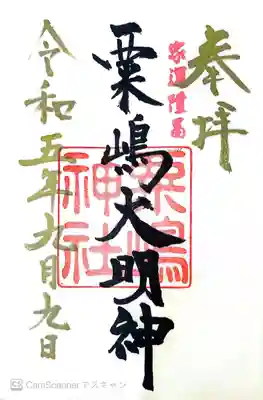 奉拝
家運隆昌
粟嶋大明神
粟嶋
神社
令和五年九月九日
CS CamScanner でスキャン